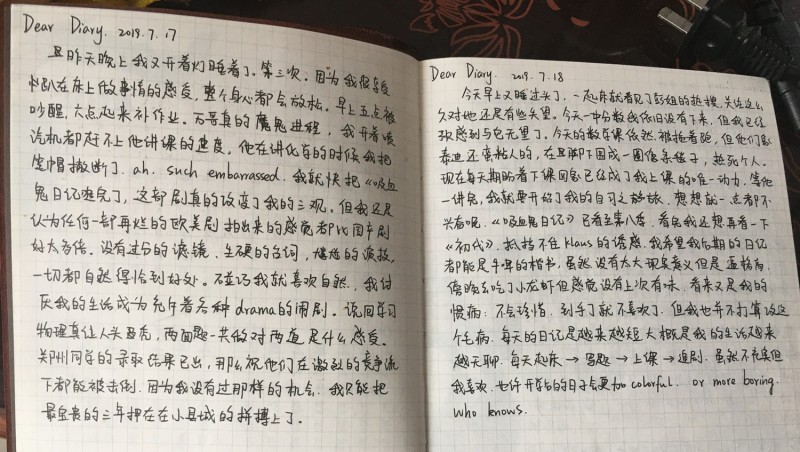 Dear Diary. 2019.7.17
昨天晚上我又开着灯睡着了。第三次。因为我很享受
趴在床上做事情的感受,整个身心都会放松。早上五点被
吵醒,六点起来补作业。万哥真的魔鬼进程,我开着喷
汽机都赶不上他讲课的速度。他在讲化学的时候我把
笔帽撤断了. ah. such embarrassed. 我就快把《吸血
鬼日记》追完了,这部剧真的改变了我的三观。但我还是
认为任何一部再烂的欧美剧拍出来的感觉都比国产剧
好太多倍。没有过分的滤镜、生硬的台词,尴尬的演技,
一切都自然得恰到好处。碰巧我就喜欢自然。我讨
厌我的生活成为充斥着各种drama的闹剧。说回学习
物理真让人头秃,两面题一共做对两道是什么感受。
郑州同学的录取结果已出,那么祝他们在激烈的竞争流
下都能被击倒。因为我没有过那样的机会,我只能把
最宝贵的三年押在在小县城的拼搏上了。
Dear Diary. 2019.7.18
今天早上又睡过头了,一起床就看见了彭组的热搜,关注这么
久对他还是有些失望。今天一中分数我依旧没有下来,但我已经
欢感到与它无望了。今天的数学课依然被拖着跑,但他们跟
泰迪还蛮粘人的,在脚下围成一圈像亲孩子,热死个人。
现在每天期盼着下课回家已经成了我上课的唯一动力。等他
一讲完,我就要开始了我的自习之旅旅,想想就一这都不
兴奋呢。《吸血鬼日记》已看到第八季。看完我还想再看一下
《初代》,抵挡不住Klaus的诱惑。我希望我后期的日记
都能是手写的楷书,虽然没有太大现实意义但是蛮格局
傍晚去吃了小龙虾但感觉没有上次有味,看来又是我的
惯病:不会珍惜,到手了就不喜欢了。但我也并不打算改这
个毛病。每天的日记是越来越短大概是我的生活越来
越无聊。每天起床→写题→上课→追剧,虽然不充实但
我喜欢,也许开学后的日子会更加colorful. or more boring.
who knows.